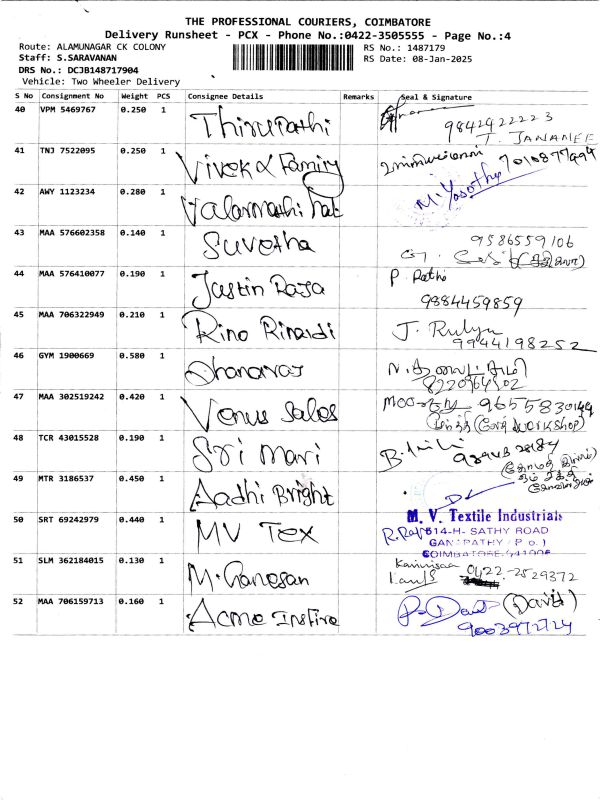 THE PROFESSIONAL COURIERS, COIMBATORE
Delivery Runsheet - PCX - Phone No.:0422-3505555 - Page No.:4
Route: ALAMUNAGAR CK COLONY
RS No.: 1487179
Staff: S.SARAVANAN
RS Date: 08-Jan-2025
DRS No.: DCJB148717904
Vehicle: Two Wheeler Delivery
S No Consignment No Weight PCS Consignee Details Remarks Seal & Signature
40 VPM 5469767 0.250 1 Thirupathi 9842922223
T. JANANEE
41 TNJ 7522095 0.250 1 Vivek & Family
42 AWY 1123234 0.280 1 Valarmathi M. Yasotha
43 MAA 576602358 0.140 1 Suvetha 9586559106
44 MAA 576410077 0.190 1 Justin Raja P. Rathi
9384459859
45 MAA 706322949 0.210 1 Rino Rinaldi J. Rulya
9944198252
46 GYM 1900669 0.580 1 Dhanaraj
47 MAA 302519242 0.420 1 Venus Sales
48 TCR 43015528 0.190 1 Sri Mari
49 MTR 3186537 0.450 1 Aadhi Bright
50 SRT 69242979 0.440 1 MV Tex M. V. Textile Industrials
R.Raj 514-H- SATHY ROAD
GANAPATHY (P.O.)
COIMBATORE-641006
51 SLM 362184015 0.130 1 M. Ganesan 0422-2529372
52 MAA 706159713 0.160 1 Acme Insfire (David)
9003972724